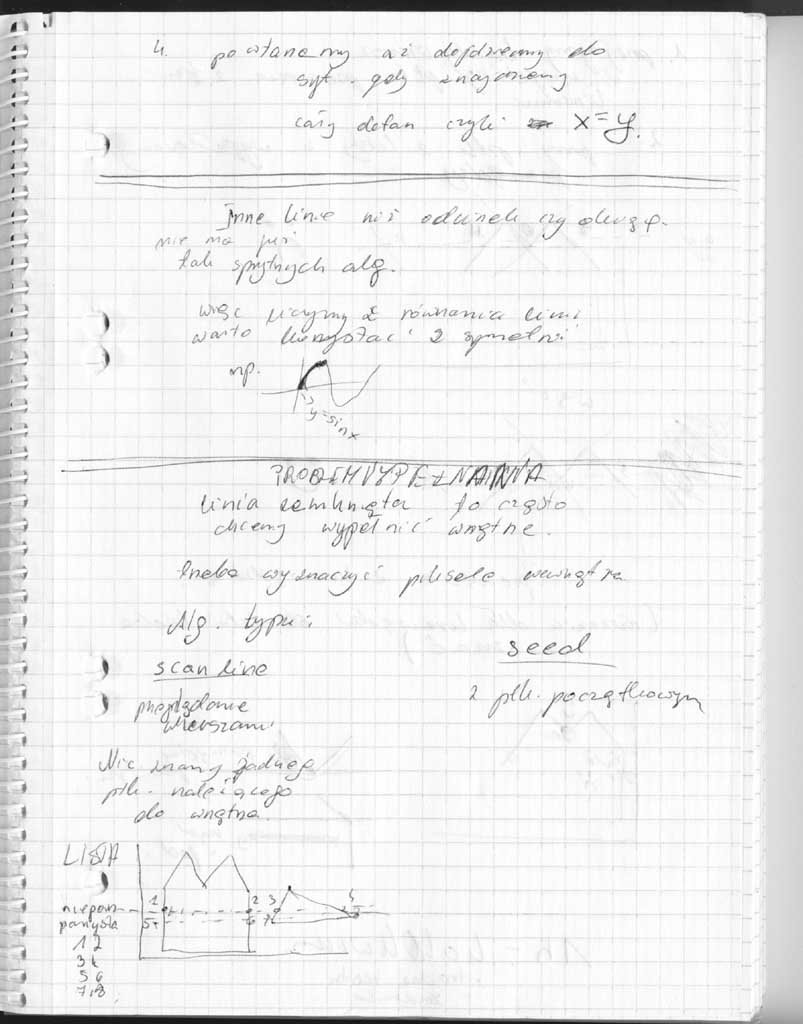 4. powtarzamy aż dojdziemy do
syt. gdy znajdziemy
cały dotan czyli x=y.
Inne linie niż odcinek czy okrąg.
nie ma już
tak sprytnych alg.
więc liczymy z równania linii
warto korzystać z symetrii
np.
y=sinx
PROBLEM WYPEŁNIANIA
linia zamknięta to często
chcemy wypełnić wnętrze.
trzeba wyznaczyć piksele wewnątrz
Alg. typu:
seed
scan line
z pik. początkowym
przeglądanie
wierszami
Nie znamy żadnego
pik. należącego
do wnętrza.
LISTA
1 2 3 4
nieparz-
parzysta
5 6 7 8
1 2
3 4
5 6
7,8